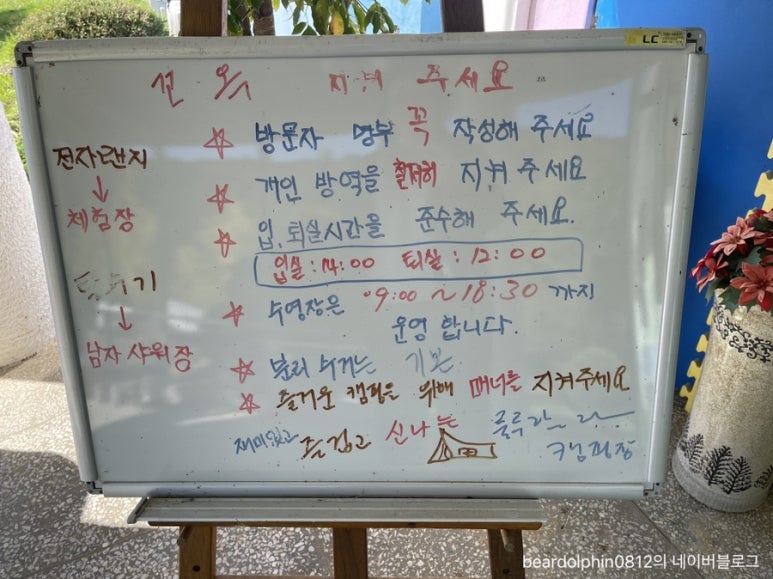 꼭 지켜 주세요
방문자 명부 꼭 작성해 주세요
개인 방역을 철저히 지켜 주세요
입, 퇴실시간을 준수해 주세요.
입실 : 14:00 퇴실 : 12:00
수영장은 09:00 ~ 18:30 까지
운영 합니다.
분리 수거는 기본
즐거운 캠핑을 위해 매너를 지켜주세요
재미있고 즐겁고 신나는
캠핑장
전자랜지
↓
체험장
탈수기
↓
남자 샤워장
LC
beardolphin0812의 네이버블로그